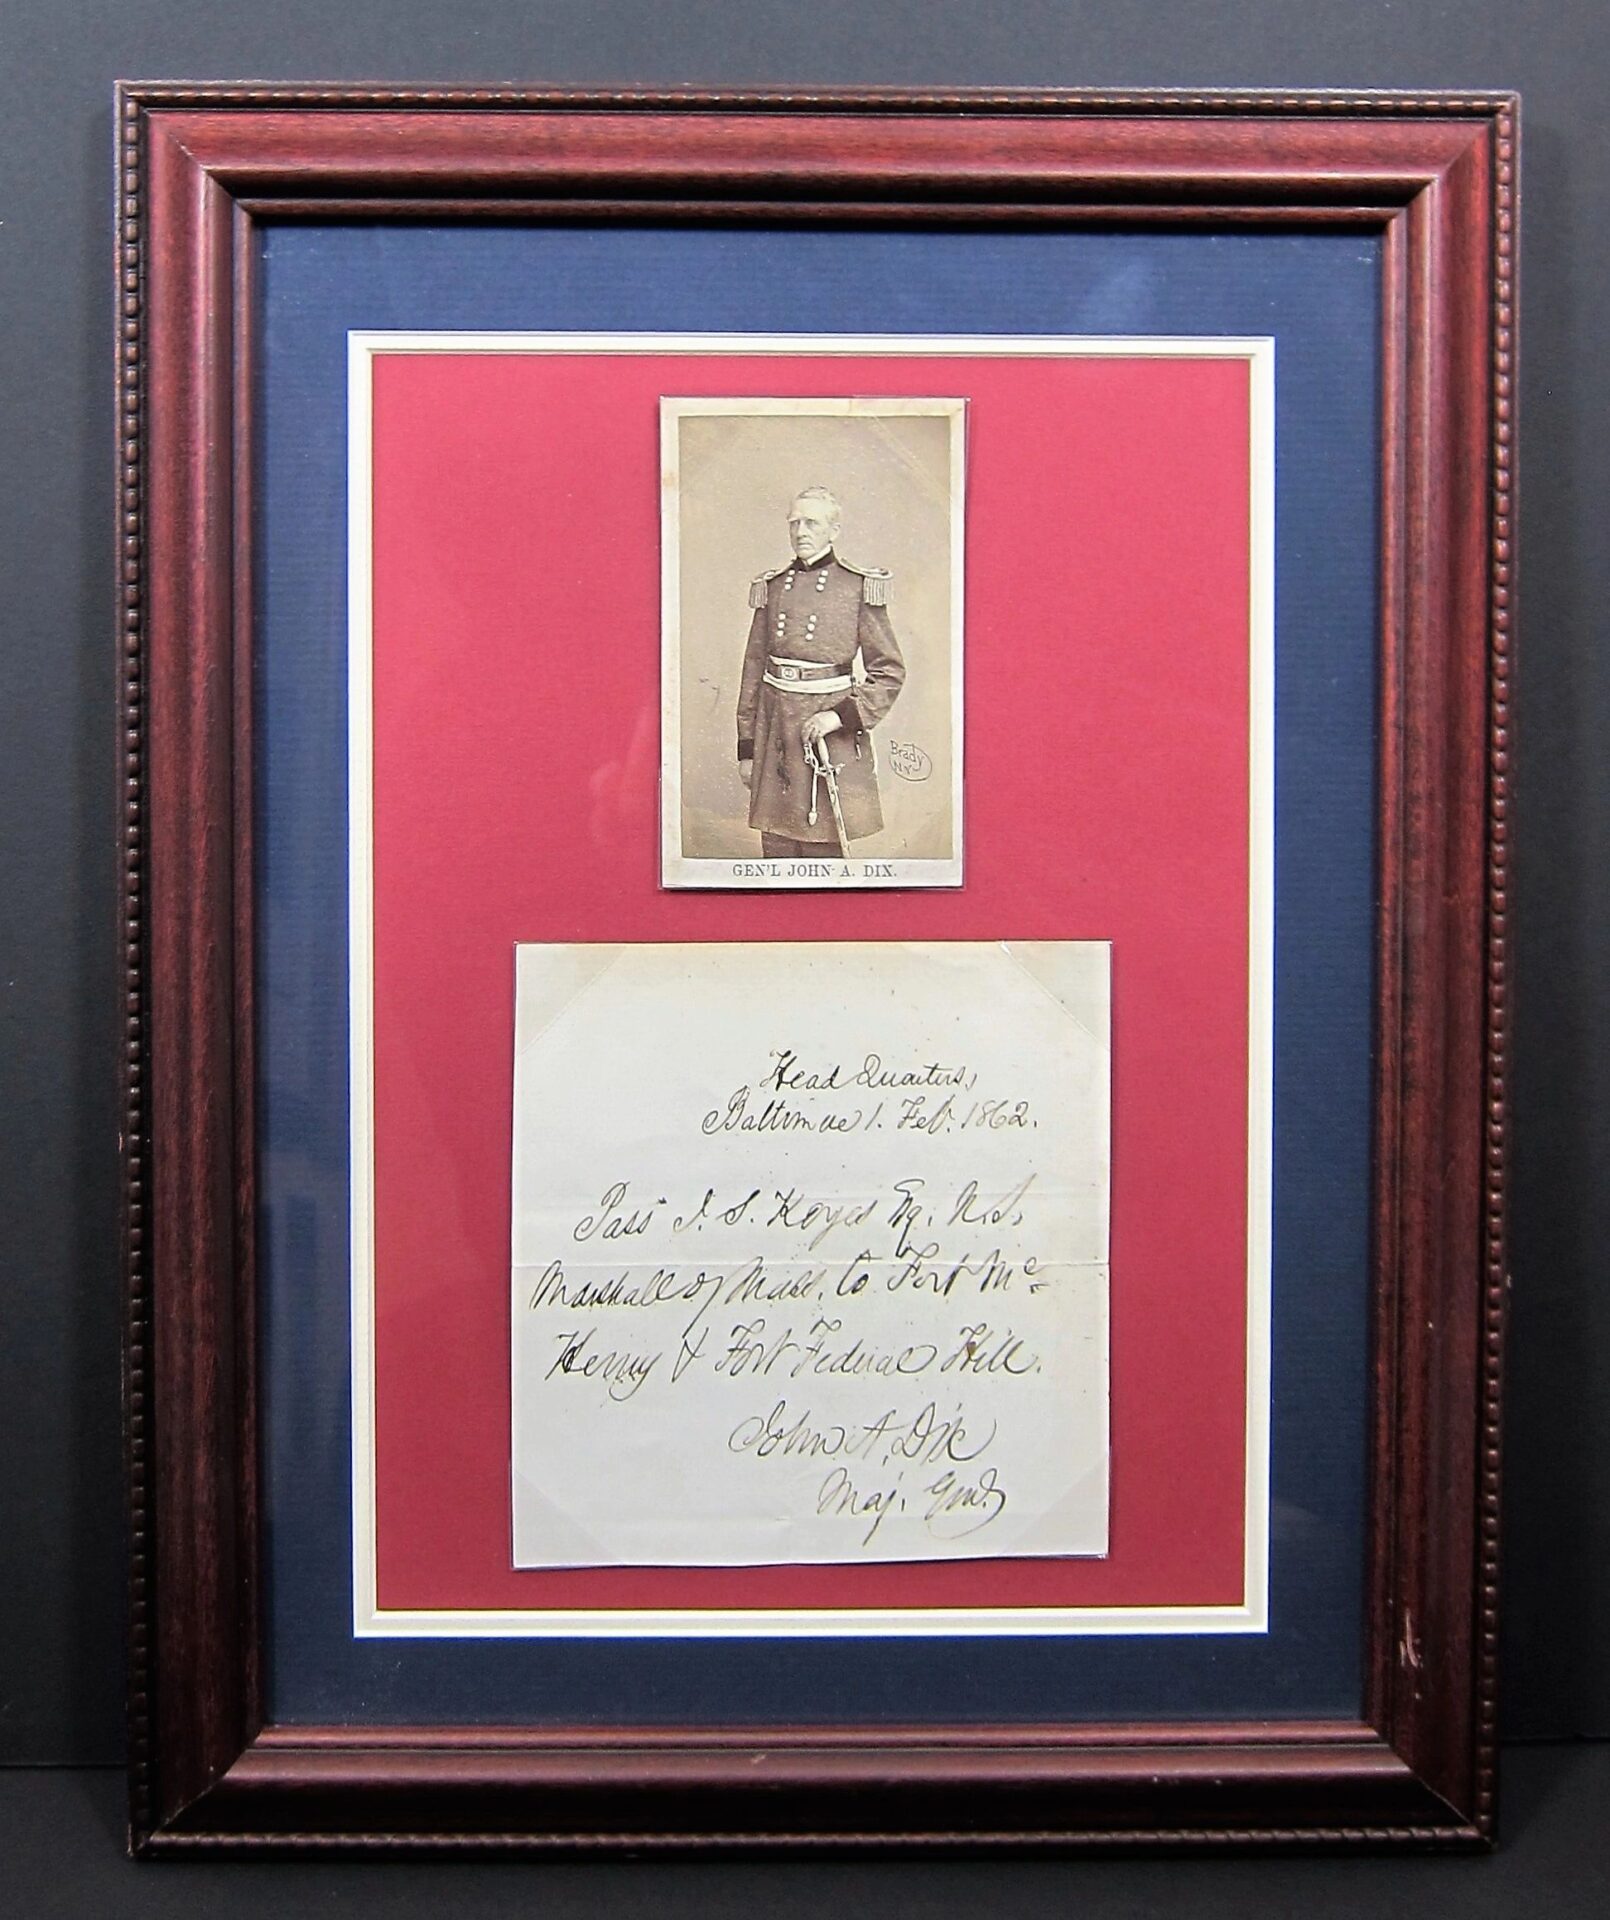 Brady
N.Y.
GEN'L JOHN A. DIX.
Head Quarters,
Baltimore 1. Feb. 1862.
Pass J. S. Keyes Esq. U.S.
Marshall of Mass. to Fort Mc
Henry & Fort Federal Hill.
John A. Dix
Maj. Genl.